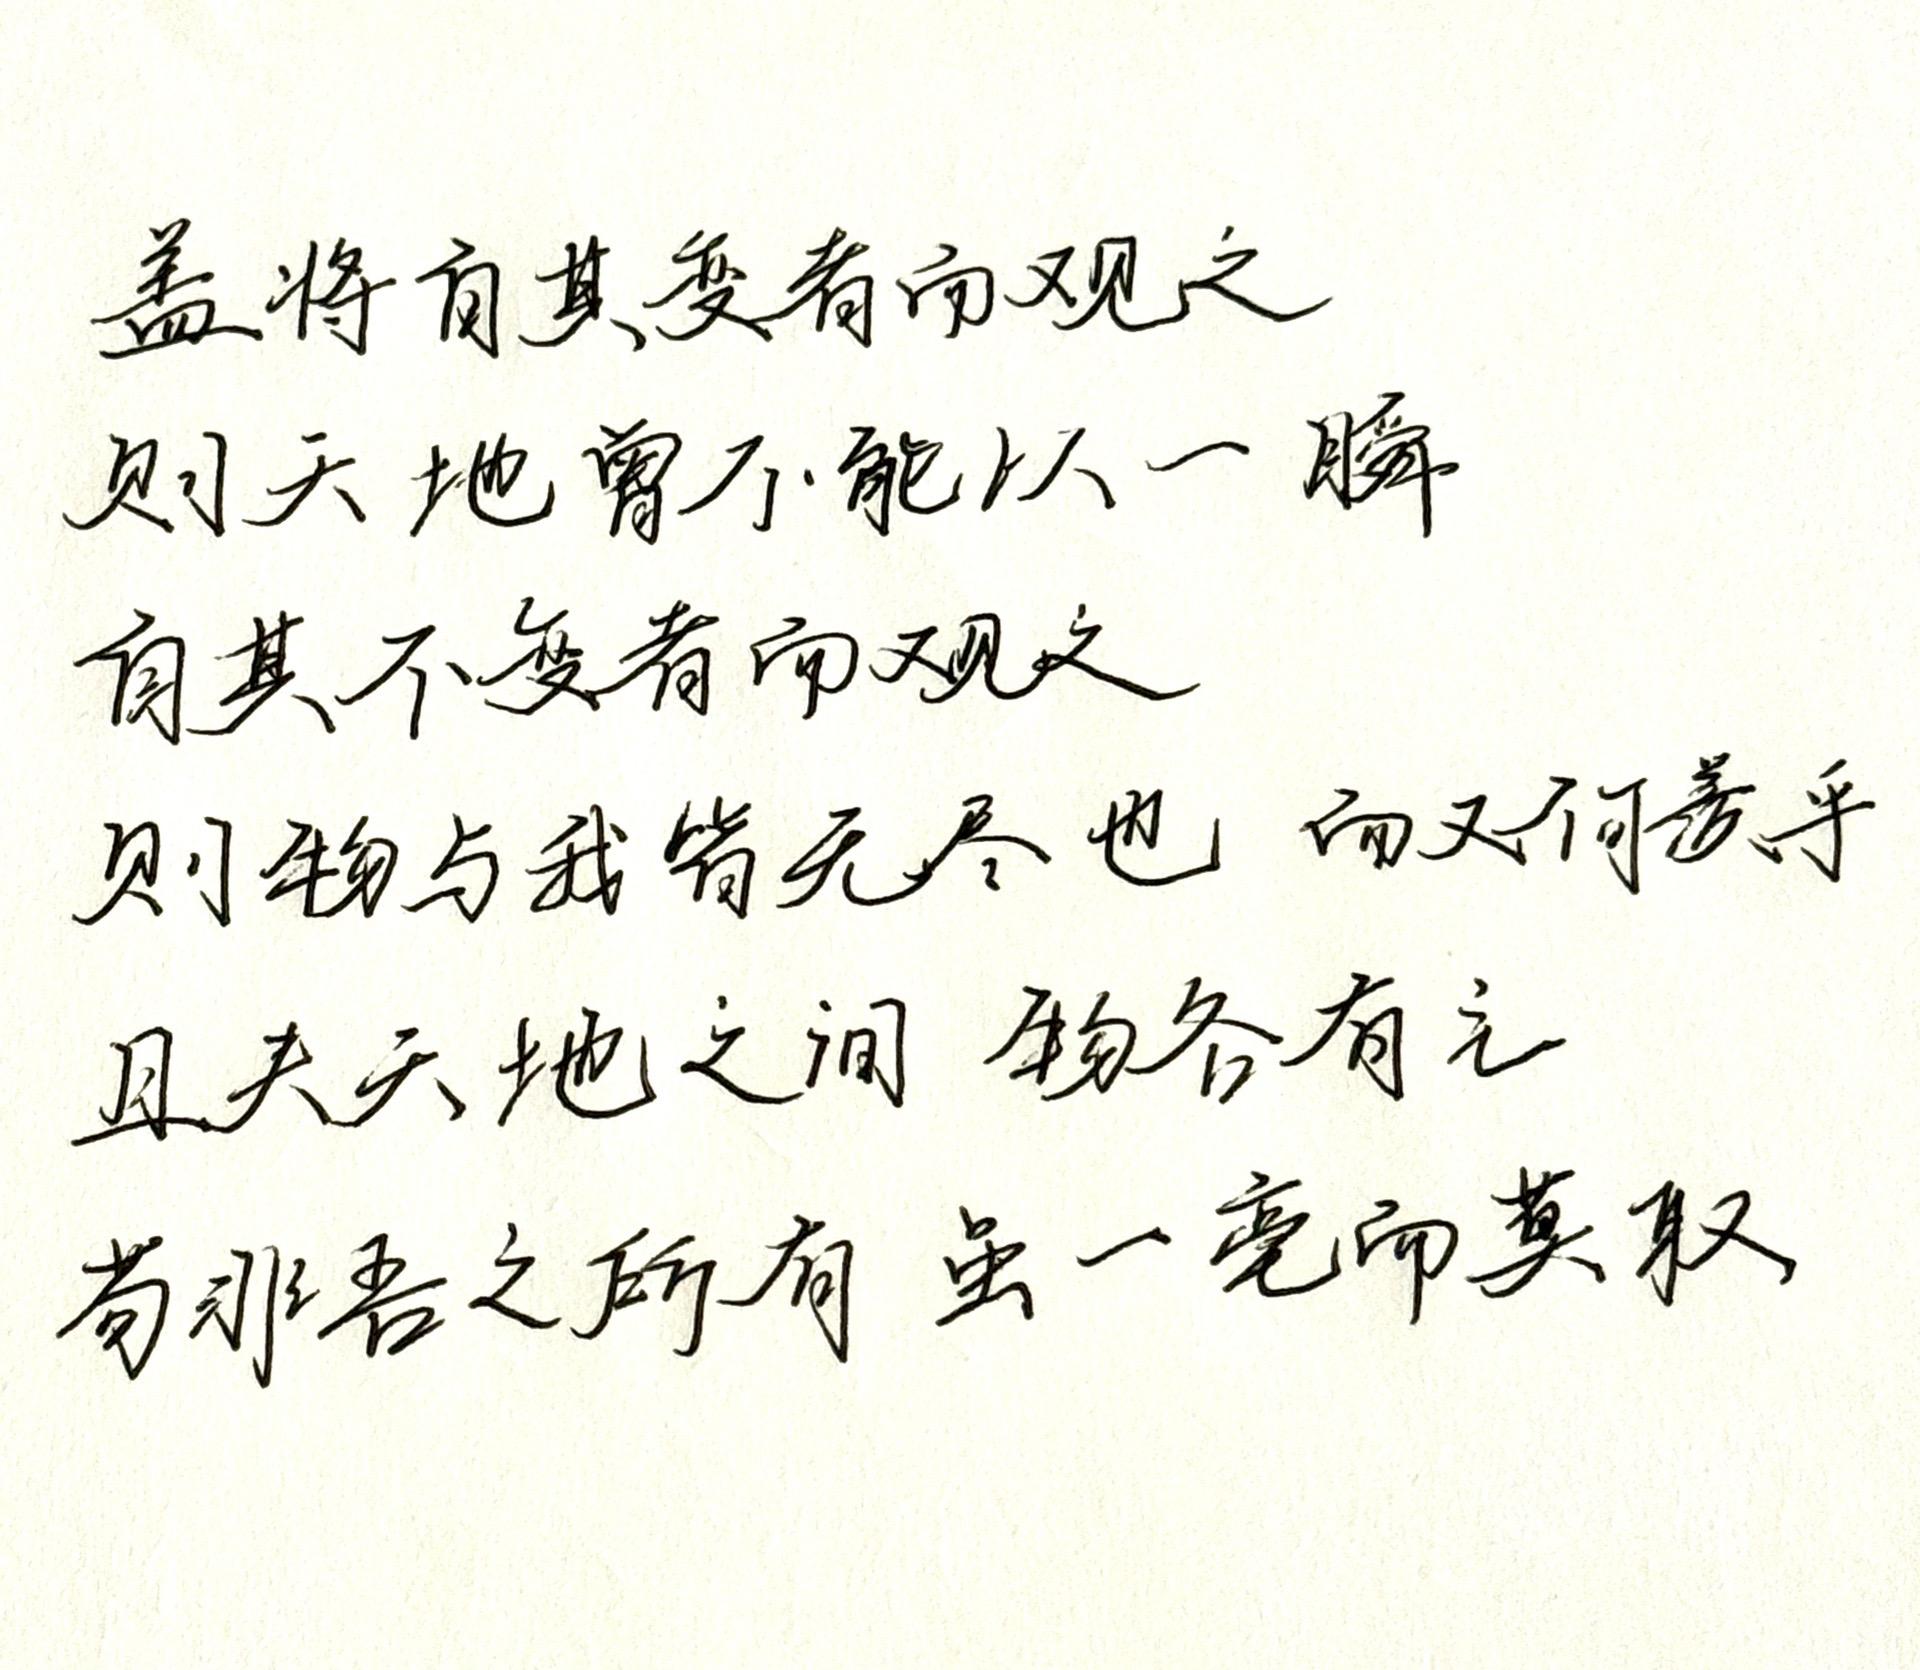 盖将自其变者而观之
则天地曾不能以一瞬
自其不变者而观之
则物与我皆无尽也 而又何羡乎
且夫天地之间 物各有主
苟非吾之所有 虽一毫而莫取